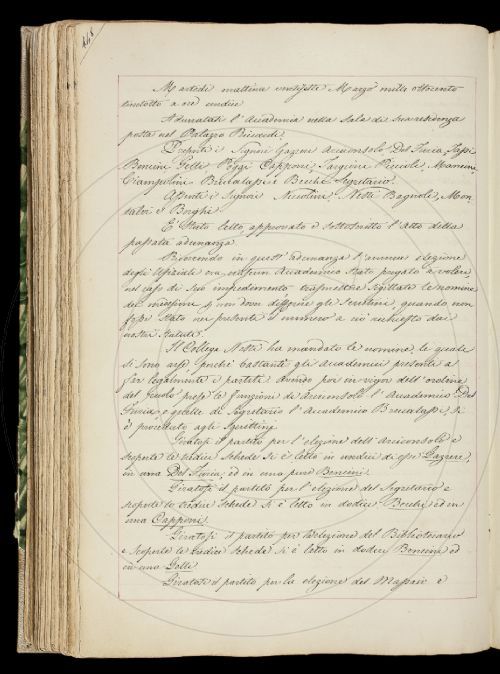 Martedì mattina ventisette Marzo mille ottocento
ventotto a ore undici
Adunatasi l'Accademia nella sala di sua residenza
posta nel Palazzo Riccardi.
Presenti i Signori Gazzeri Arciconsolo Del Furia, Fossi
Bencini Gelli, Poggi Capponi, Targioni Piccioli, Mancini
Ciampolini Brucalassi e Becchi Segretario.
Assenti i Signori Niccolini, Nesti Bagnoli, Mon-
talvi e Borghi.
È stato letto approvato e sottoscritto l'Atto della
passata adunanza.
Ricorrendo in quest'adunanza l'annua elezione
degli Ufiziali era ciascun Accademico stato pregato a volere
nel caso di suo impedimento trasmettere sigillate le nomine
dei medesimi p non dover differire gli Scrutini quando non
fosse stato ivi presente il numero a ciò richiesto dai
nostri Statuti.
Il Collega Nesti ha mandato le nomine, le quali
si sono arse perchè bastanti gli accademici presenti a
far legalmente i partiti. Avendo poi in vigor dell'ordine
del prese le funzioni di Arciconsolo l'Accademico Del
Furia, e quelle di Segretario l'Accademico Brucalassi, si
è proceduto agli Squittinj.
Giratosi il partito per l'elezione dell'Arciconsolo e
scoperte le tredici schede si è letto in undici di esse Gazzeri,
in una Del Furia, ed in una pure Bencini.
Giratosi il partito per l'elezione del Segretario e
scoperte le tredici schede si è letto in dodici Becchi ed in
una Capponi.
Giratosi il partito per l'elezione del Bibliotecario
e scoperte le tredici schede si è letto in dodici Bencini ed
in una Gelli.
Giratosi il partito per la elezione del Massaio e